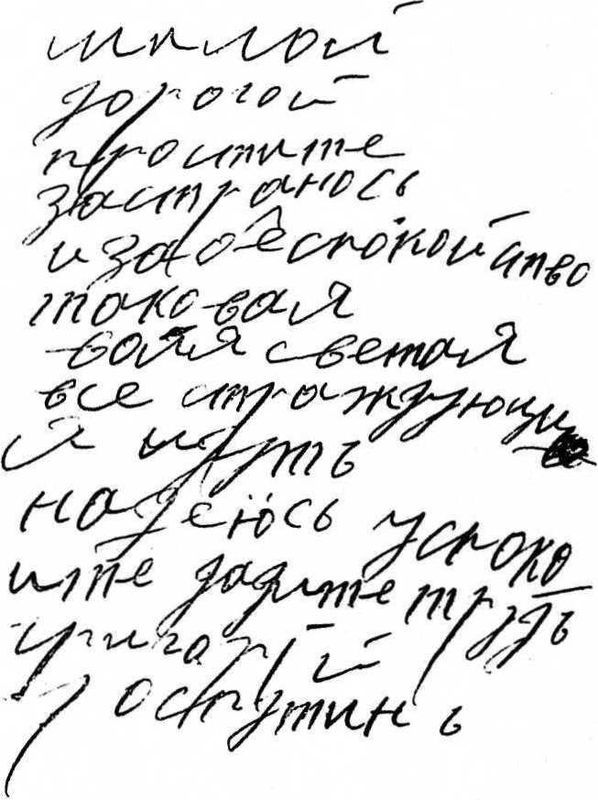 милой
дорогой
простите
застраюсь
и за обеспокойство
таковая
воля светая
все стражующи
я идуть
надеюсь успоко
ите дадите трудъ
григорий
роспутинъ